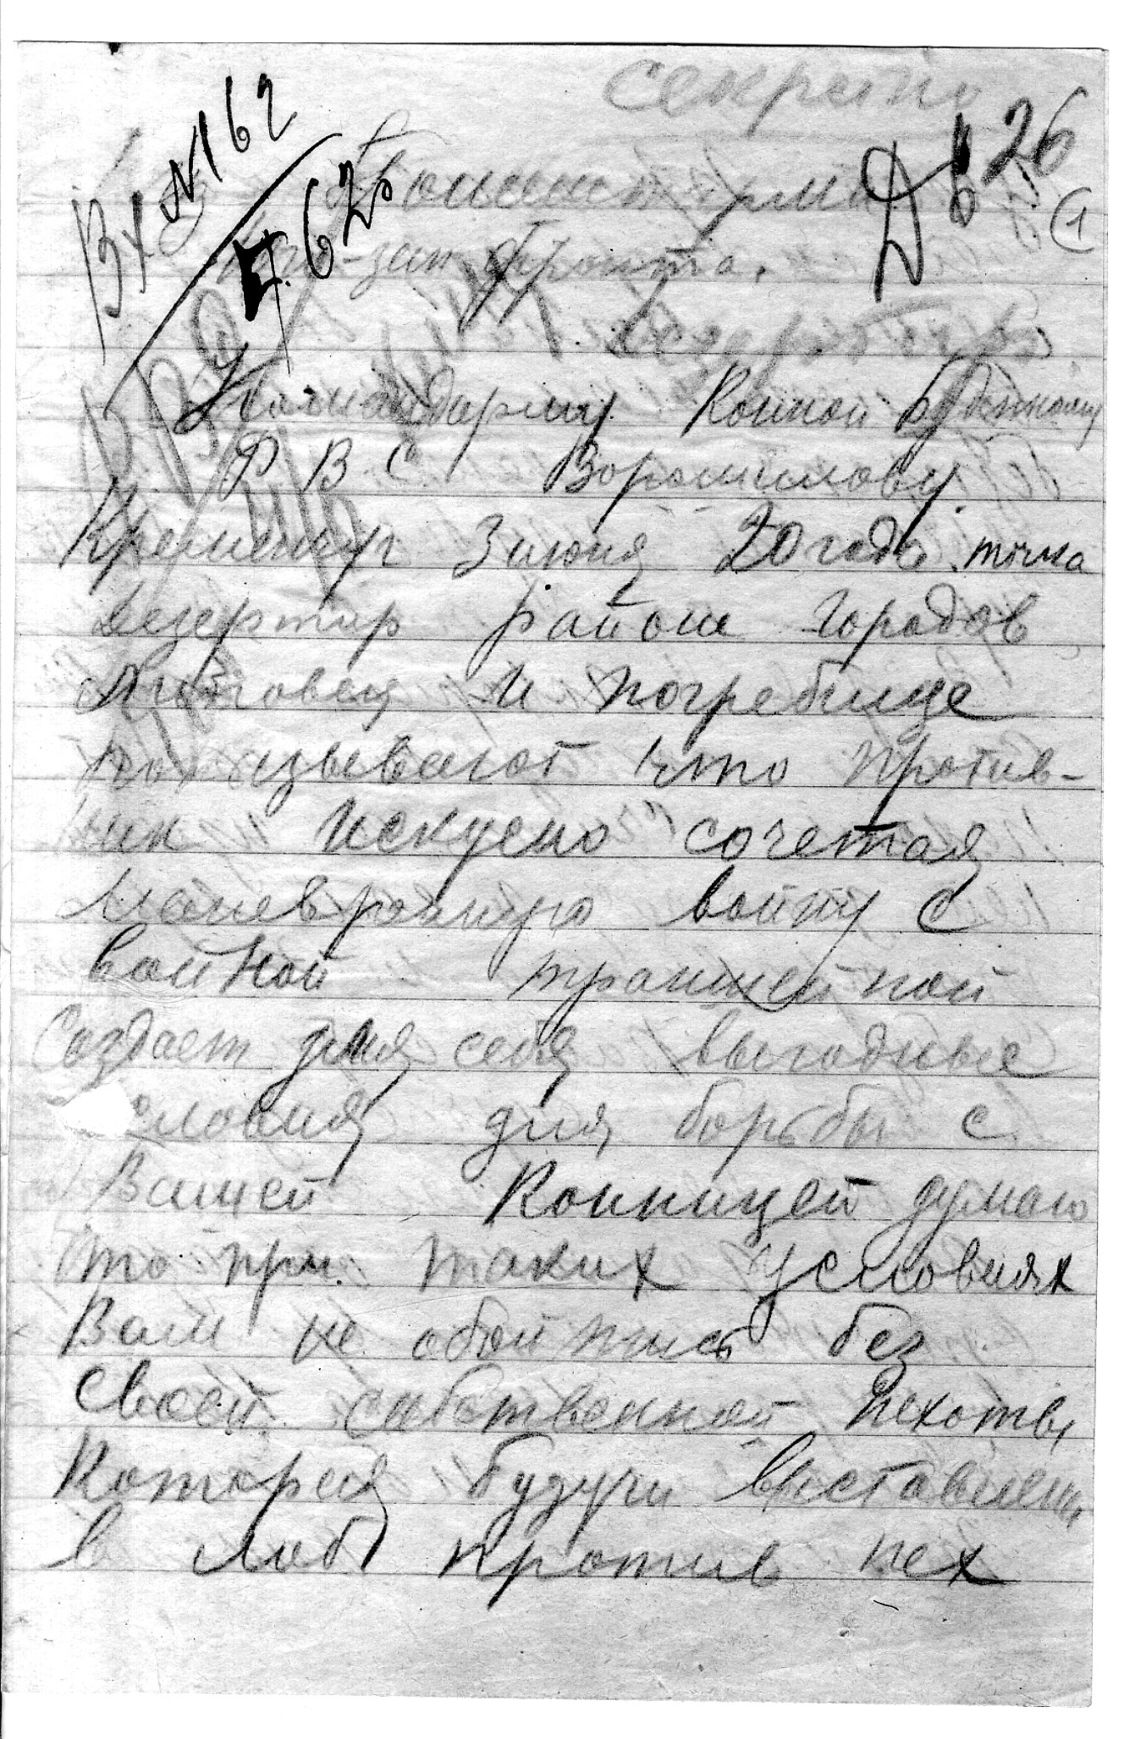 Секретно
Вх №162
7.6 20
Д 6 26
1
юго-зап фронта.
Командарму Конной Буденному
РВС Ворошилову
Кременчуг 3 июня 20 года точка
Дезертир районе городов
Липовец и погребище
показывают что против-
ник искусно сочетая
маневренную войну с
войной траншейной
Создает для себя выгодные
словия для борьбы с
Вашей Конницей думаю
то при таких условиях
Вам не обойтись без
своей собственной пехоты,
Которая будучи выставлена
в лоб против пех